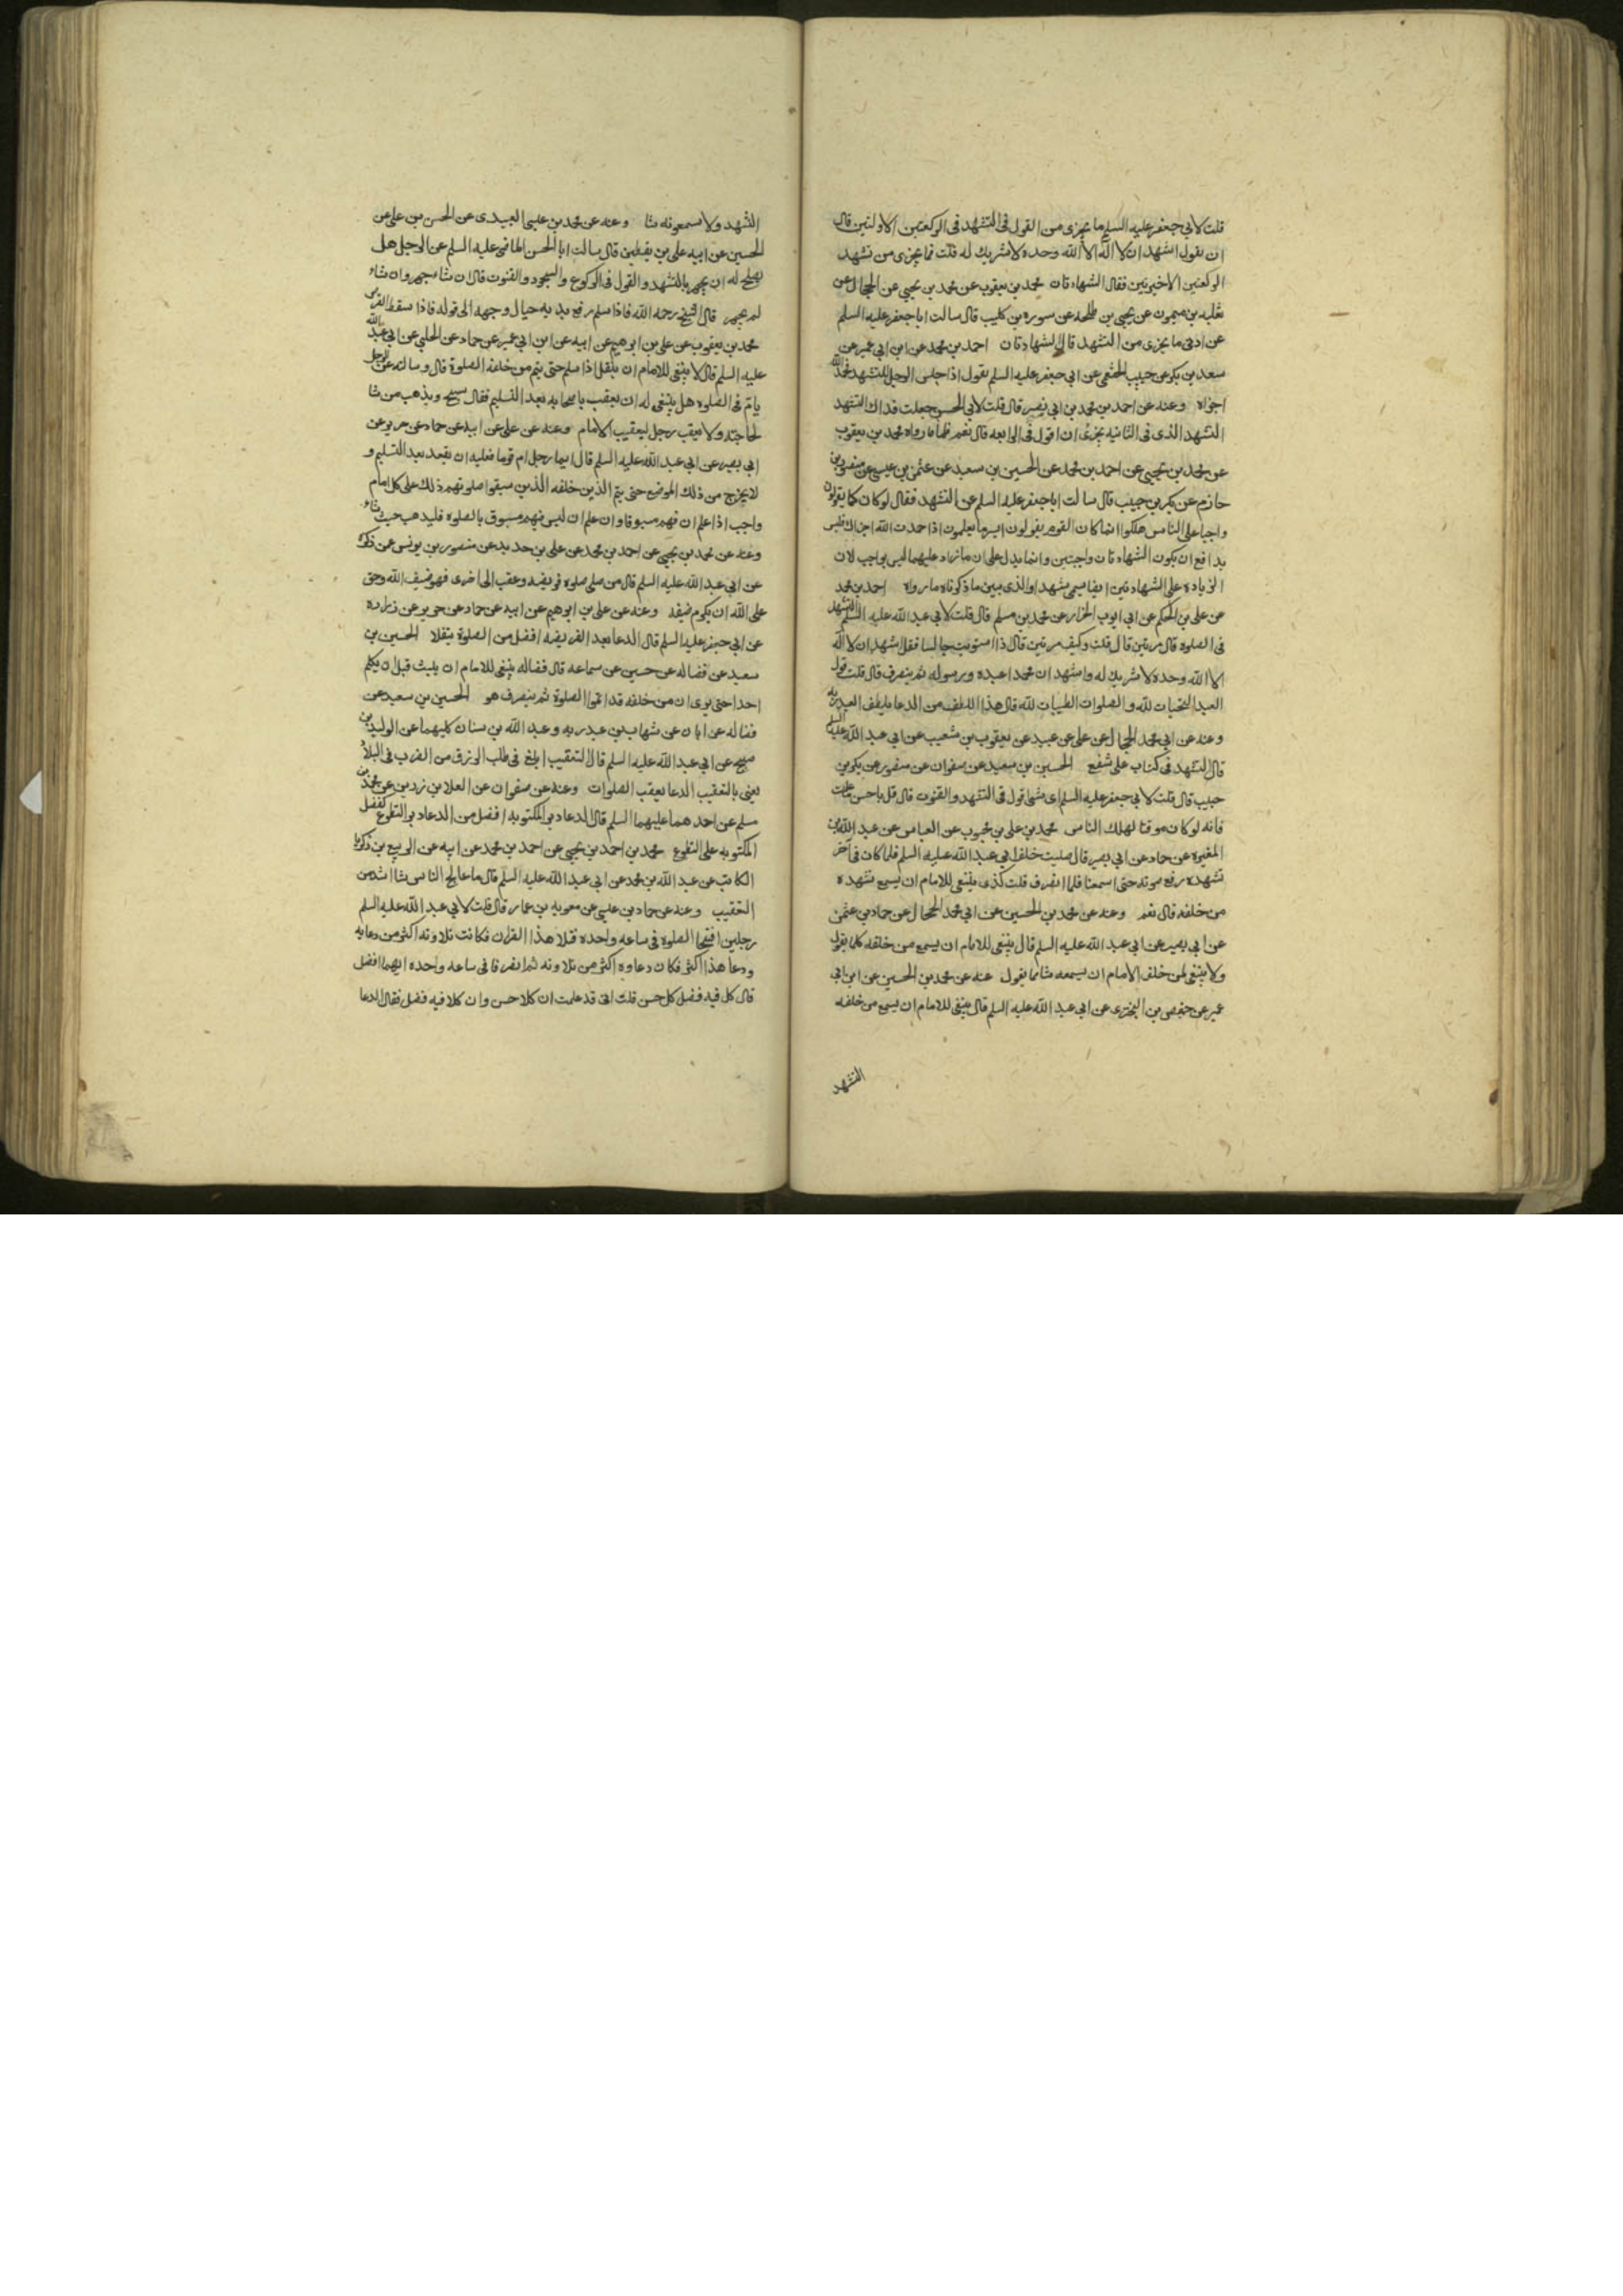 قلت لابي جعفر عليه السلم ما يجزى من القول فى التشهد فى الركعتين الاولتين قال
ان يقول اشهد ان لا اله الا الله وحده لا شريك له قلت فما يجزى من تشهد
الركعتين الاخيرتين فقال الشهادتان محمد بن يعقوب عن محمد بن يحيى عن الحجال عن
ثعلبه بن ميمون عن يحيى بن طلحه عن سوره بن كليب قال سالت ابا جعفر عليه السلم
عن ادنى ما يجزى من التشهد قال الشهادتان احمد بن محمد عن ابن ابى عمير عن
سعد بن بكر عن حبيب الخثعمى عن ابى جعفر عليه السلم يقول اذا جلس الرجل للتشهد فحمد الله
اجزاه وعنه عن احمد بن محمد بن ابى نصر قال قلت لابى الحسن جعلت فداك التشهد
التشهد الذى فى الثانيه يجزئ ان اقول فى الرابعه قال نعم فاما ما رواه محمد بن يعقوب
عن محمد بن يحيى عن احمد بن محمد عن الحسين بن سعيد عن عثمن بن عيسى عن منصور بن
حازم عن بكر بن حبيب قال سالت ابا جعفر عليه السلم عن التشهد فقال لو كان كما يقولون
واجبا على الناس هلكوا انما كان القوم يقولون ايسر ما يعلمون اذا حمدت الله اجزاك فليس
بدافع ان يكون الشهادتان واجبتين وانما يدل على ان ما زاد عليهما ليس بواجب لان
الزيادة على الشهادتين ايضا يسمى تشهدا والذى يبين ما ذكرناه ما رواه احمد بن محمد
عن على بن الحكم عن ابى ايوب الخزاز عن محمد بن مسلم قال قلت لابى عبد الله عليه السلم التشهد
فى الصلوه قال مرتين قال قلت وكيف مرتين قال اذا استويت جالسا فقل اشهد ان لا اله
الا الله وحده لا شريك له واشهد ان محمدا عبده ورسوله ثم ينصرف قال قلت قول
العبد التحيات لله والصلوات الطيبات لله قال هذا اللطف من الدعا يلطف العبد ربه
وعنه عن ابى محمد الحجال عن على عن عبيد عن يعقوب بن شعيب عن ابى عبد الله عليه السلم
قال التشهد فى كتاب على شفع الحسين بن سعيد عن صفوان عن منصور عن بكر بن
حبيب قال قلت لابى جعفر عليه السلم اى شئ اقول فى التشهد والقنوت قال قل باحسن ما علمت
فانه لو كان موقتا لهلك الناس محمد بن على بن محبوب عن العباس عن عبد الله بن
المغيره عن حماد عن ابى بصير قال صليت خلف ابى عبد الله عليه السلم فلما كان فى آخر
تشهده رفع صوته حتى اسمعنا فلما انصرف قلت كذى ينبغى للامام ان يسمع تشهده
من خلفه قال نعم وعنه عن محمد بن الحسين عن ابى محمد الحجال عن حماد بن عثمن
عن ابى بصير عن ابى عبد الله عليه السلم قال ينبغى للامام ان يسمع من خلفه كلما يقول
ولا ينبغى لمن خلف الامام ان يسمعه شئا مما يقول عنه عن محمد بن الحسين عن ابن ابى
عمير عن حفص بن البخترى عن ابى عبد الله عليه السلم قال ينبغى للامام ان يسمع من خلفه
التشهد
التشهد ولا يسمعونه شئا وعنه عن محمد بن عيسى العبيدى عن الحسن بن على عن
الحسين عن ابيه على بن يقطين قال سالت ابا الحسن الماضى عليه السلم عن الرجل هل
يصلح له ان يجهر بالتشهد والقول فى الركوع والسجود والقنوت قال ان شا جهر وان شاء
لم يجهر قال الشيخ رحمه الله فاذا سلم رفع يديه حيال وجهه الى قوله فاذا سقط القرص
محمد بن يعقوب عن على بن ابرهيم عن ابيه عن ابن ابى عمير عن حماد عن الحلبى عن ابى عبد الله
عليه السلم قال لا ينبغى للامام ان ينفتل اذا سلم حتى يتم من خلفه الصلوة قال وسالته عن الرجل
يام فى الصلوه هل ينبغى له ان يعقب باصحابه بعد التسليم فقال يسبح ويذهب من شا
لحاجته ولا يعقب رجل لتعقيب الامام وعنه عن على عن ابيه عن حماد عن حريز عن
ابى بصير عن ابى عبد الله عليه السلم قال ايما رجل ام قوما فعليه ان يقعد بعد التسليم و
لا يخرج من ذلك الموضع حتى يتم الذين خلفه الذين سبقوا صلوتهم ذلك على كل امام
واجب اذا علم ان فيهم مسبوقا وان علم ان ليس فيهم مسبوق بالصلوه فليذهب حيث شاء
وعنه عن محمد بن يحيى عن احمد بن محمد عن على بن حديد عن منصور بن يونس عن ذكره
عن ابى عبد الله عليه السلم قال من صلى صلوه فريضه وعقب الى اخرى فهو ضيف الله وحق
على الله ان يكرم ضيفه وعنه عن على بن ابرهيم عن ابيه عن حماد عن حريز عن زراره
عن ابى جعفر عليه السلم قال الدعا بعد الفريضه افضل من الصلوة تنفلا الحسين بن
سعيد عن فضاله عن حسين عن سماعه قال فضاله ينبغى للامام ان يلبث قبل ان يكلم
احدا حتى يرى ان من خلفه قد اتموا الصلوة ثم ينصرف هو الحسين بن سعيد عن
فضاله عن ابان عن شهاب بن عبد ربه وعبد الله بن سنان كليهما عن الوليد بن
صبيح عن ابى عبد الله عليه السلم قال التعقيب ابلغ فى طلب الرزق من الضرب فى البلاد
يعنى بالتعقيب الدعا بعقب الصلوات وعنه عن صفوان عن العلا بن رزين عن محمد بن
مسلم عن احدهما عليهما السلم قال الدعا دبر المكتوبه افضل من الدعا دبر التطوع كفضل
المكتوبه على التطوع محمد بن احمد بن يحيى عن احمد بن محمد عن ابيه عن الربيع بن زكريا
الكاتب عن عبد الله بن محمد عن ابى عبد الله عليه السلم قال ما عالج الناس شئا اشد من
التعقيب وعنه عن حماد بن عيسى عن معويه بن عمار قال قلت لابى عبد الله عليه السلم
رجلين افتتحا الصلوة فى ساعه واحده فتلا هذا القران فكانت تلاوته اكثر من دعايه
ودعا هذا اكثر فكان دعاوه اكثر من تلاوته ثم انصرفا فى ساعه واحده ايهما افضل
قال كل فيه فضل كل حسن قلت انى قد علمت ان كلا حسن وان كلا فيه فضل فقال الدعا